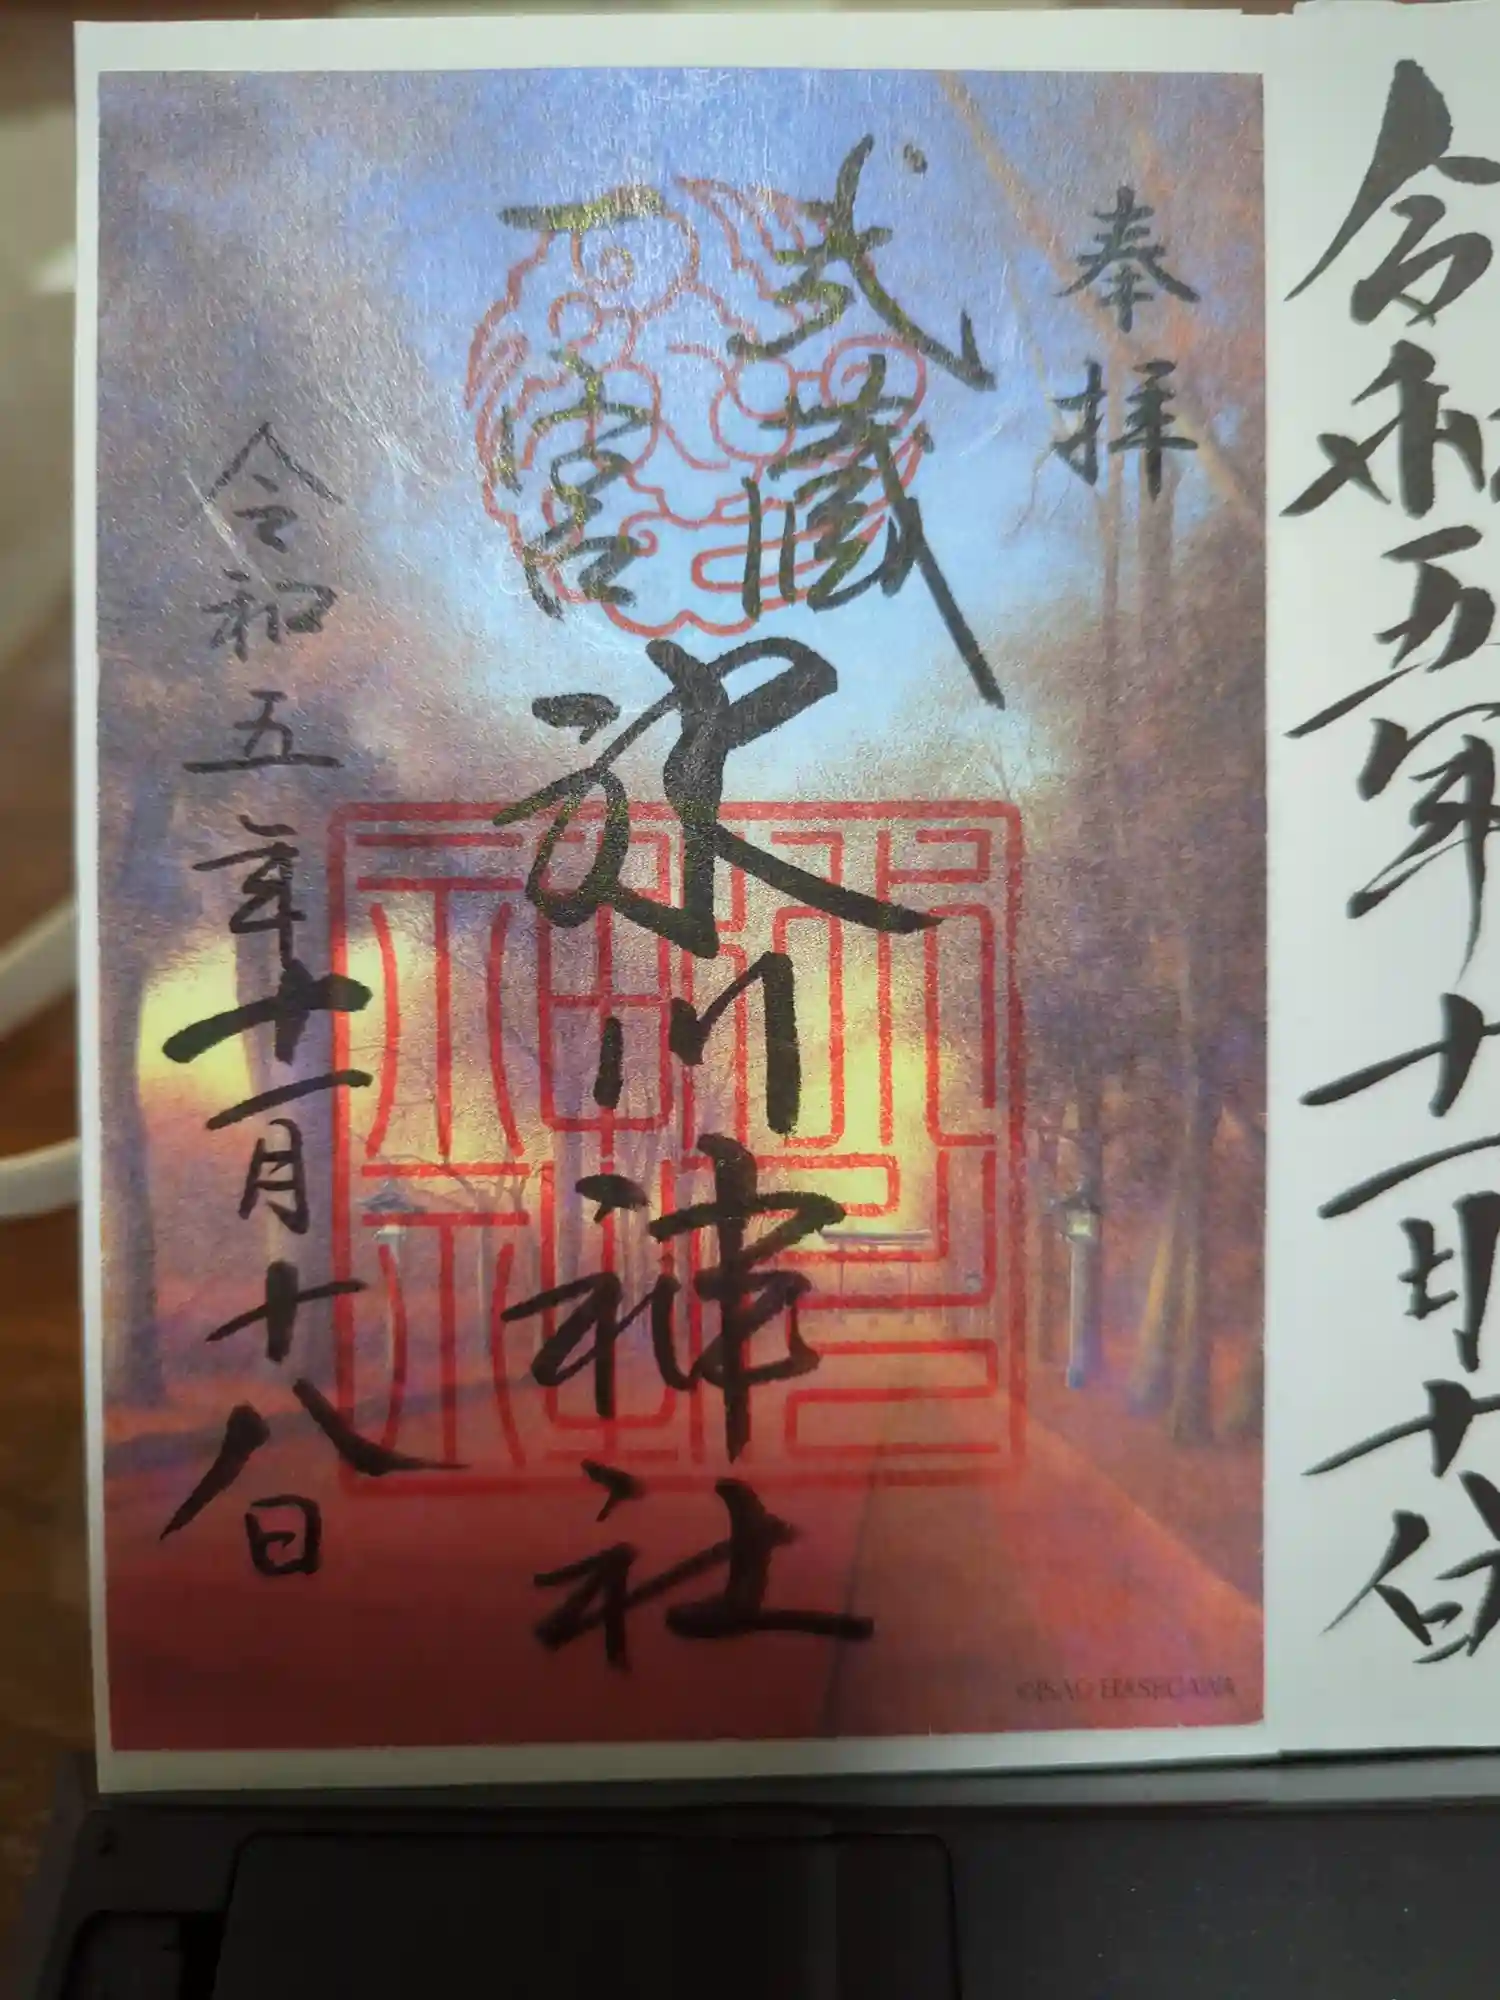 令和五年十一月十八日
奉拝
武蔵
一宮
氷川神社
令和五年十一月十八日
©ISAO HASEGAWA